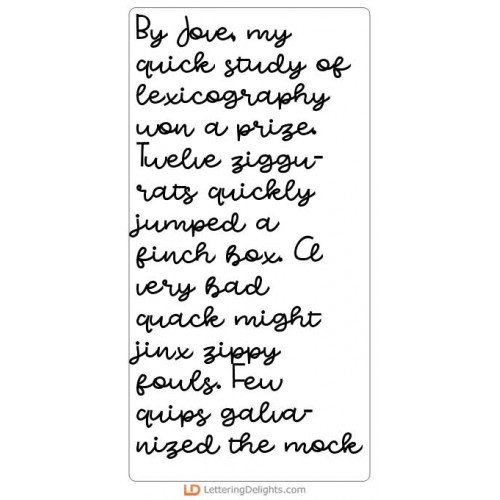 By Jove, my
quick study of
lexicography
won a prize.
Twelve ziggu-
rats quickly
jumped a
finch box. A
very bad
quack might
jinx zippy
fouls. Few
quips galva-
nized the mock
LD LetteringDelights.com